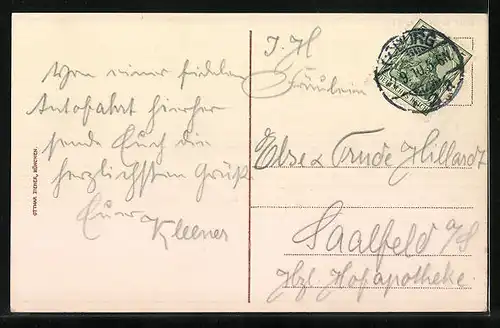 Von einer fidelen
Autofahrt hierher
sende Euch die
herzlichsten Grüße
Euer
Kleener
OTTMAR ZIEHER, MÜNCHEN.
I. H.
Fräulein
Else & Trude Hillardt
Saalfeld a/S
Hzl. Hofapotheke.